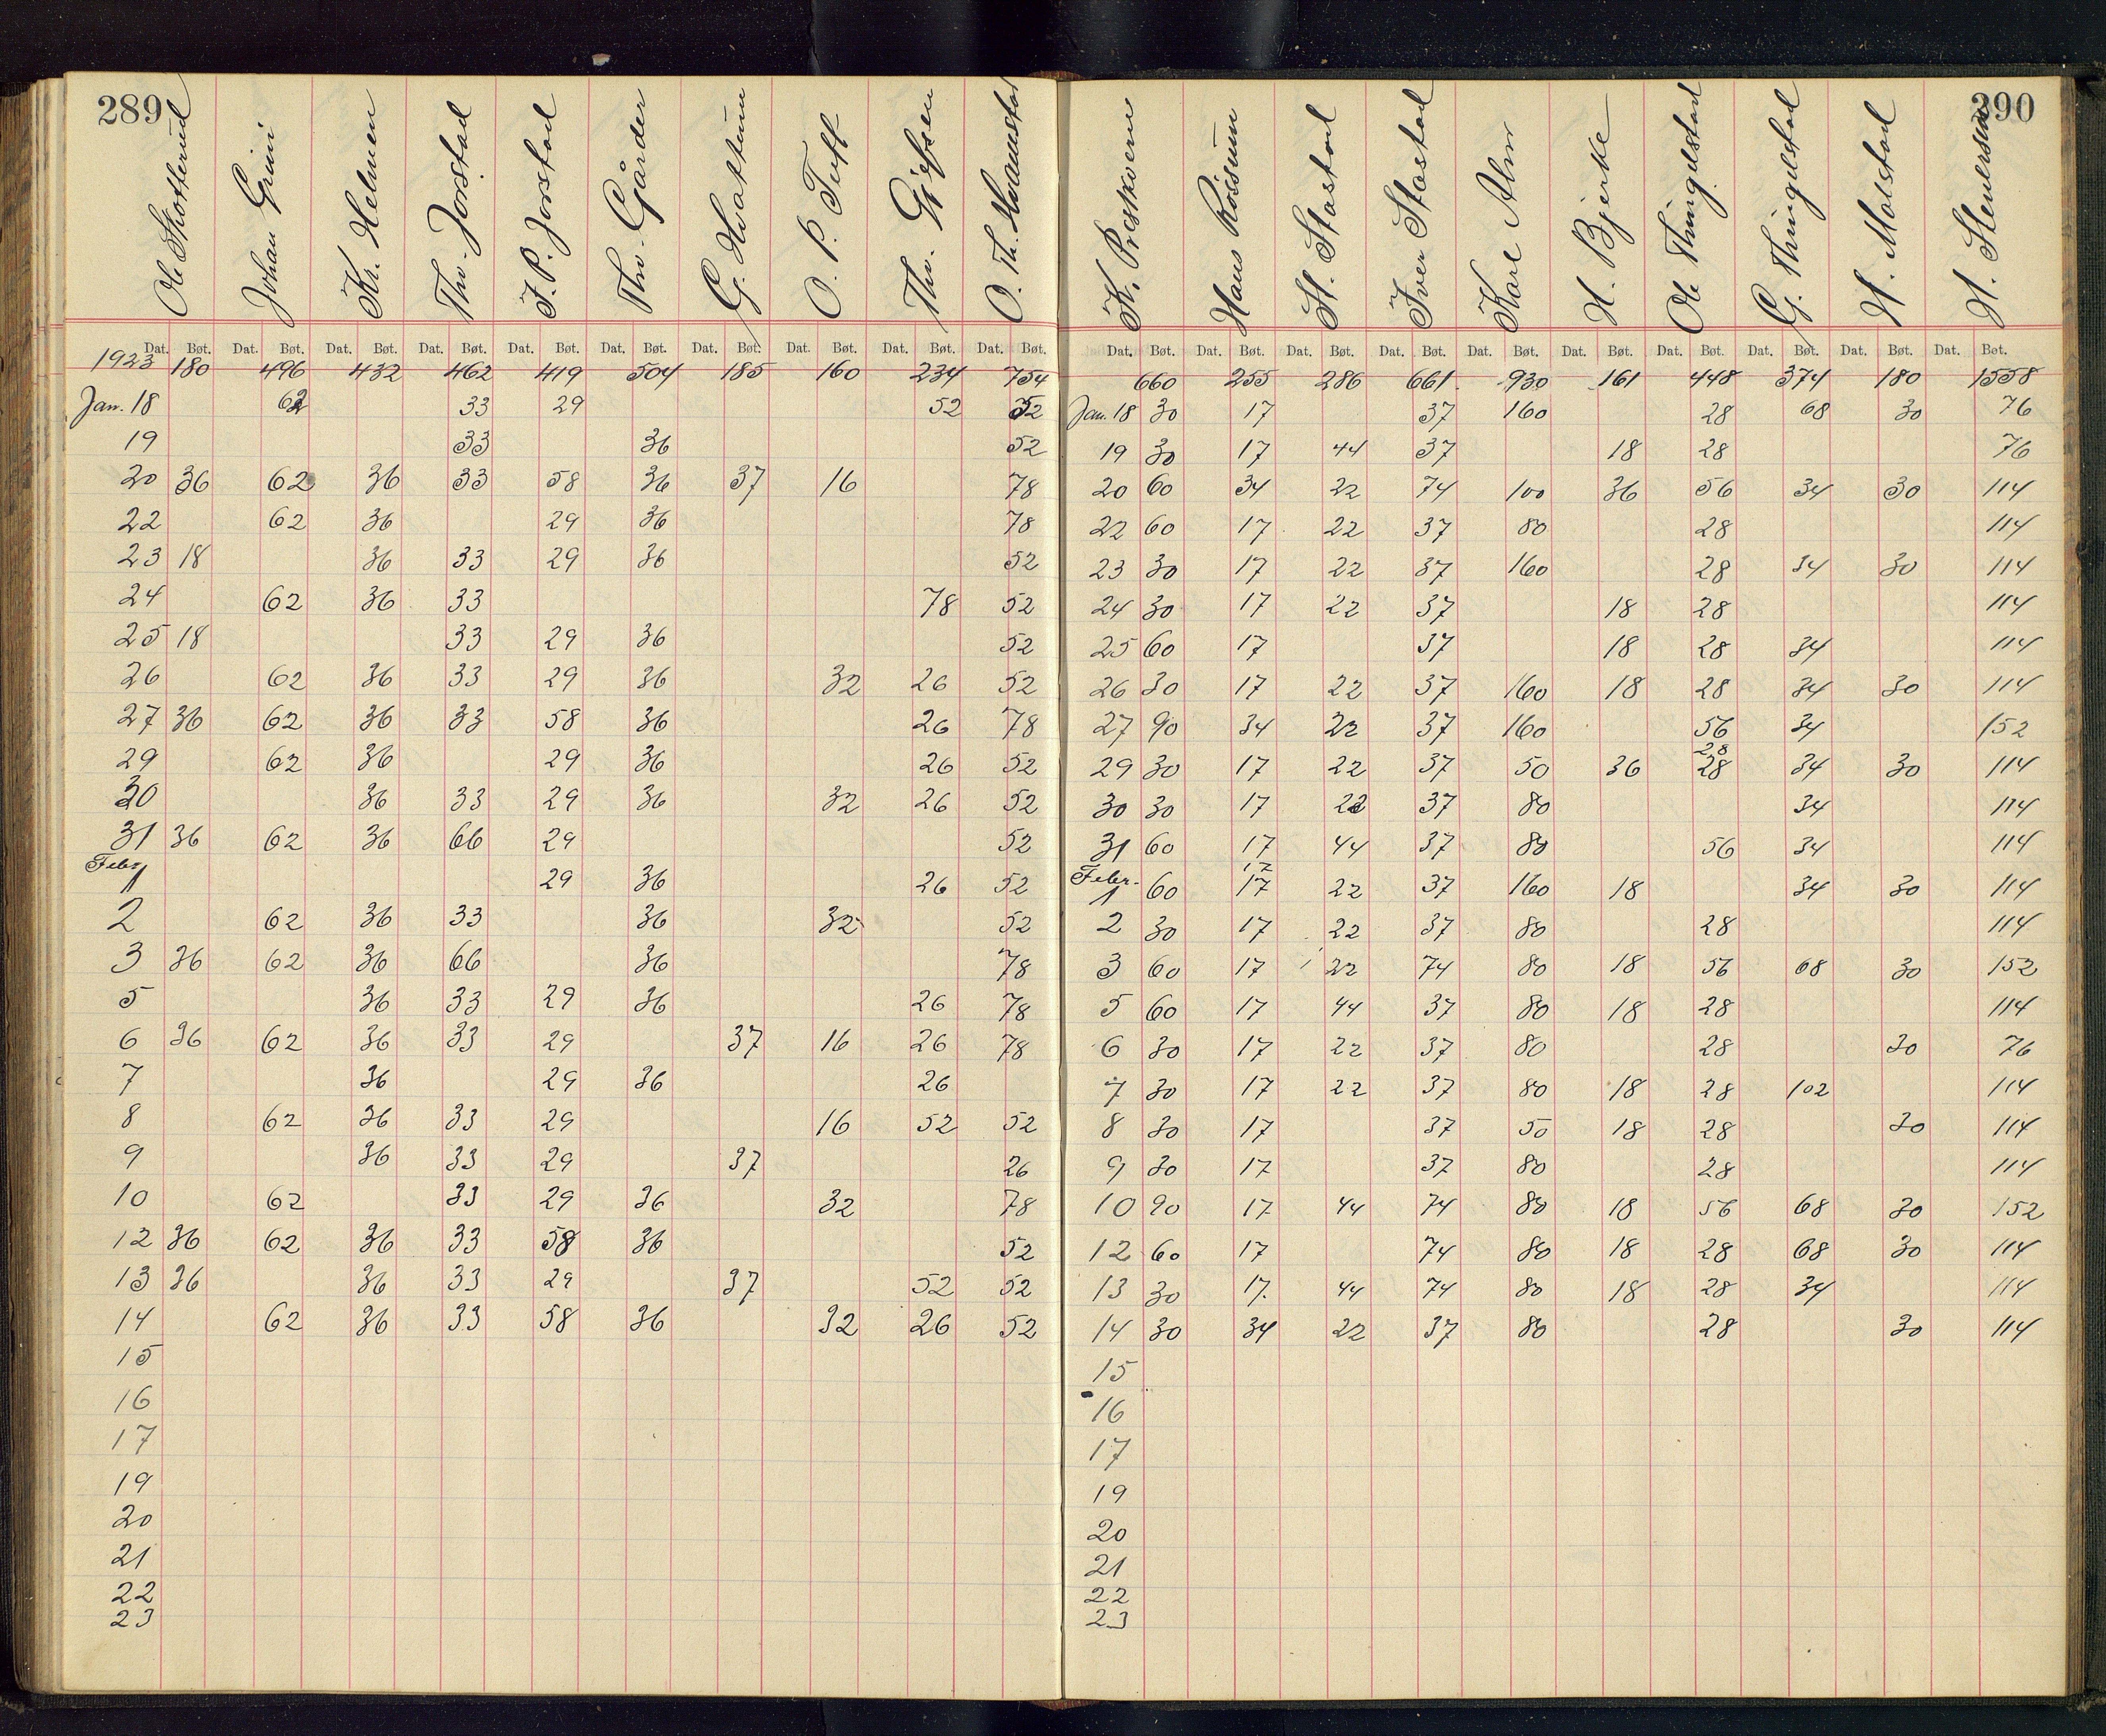 289
Ole Skotterud Johan Grini Kr. Helmen Thv. Jorstad J. P. Jorstad Thv. Gårder G. Hvattum O. P. Tuft Thv. O. Th.
Dat. Bøt. Dat. Bøt. Dat. Bøt. Dat. Bøt. Dat. Bøt. Dat. Bøt. Dat. Bøt. Dat. Bøt. Dat. Bøt. Dat. Bøt.
1923 180 496 432 462 419 504 185 160 234 754
Jan. 18 62 33 29 52 52
19 33 36 52
20 36 62 36 33 58 36 37 16 78
22 62 36 29 36 78
23 18 36 33 29 36 52
24 62 36 33 78 52
25 18 33 29 36 52
26 62 36 33 29 36 32 26 52
27 36 62 36 33 58 36 26 78
29 62 36 29 36 26 52
30 36 33 29 36 32 26 52
31 36 62 36 66 29 52
Febr 1 29 36 26 52
2 62 36 33 36 32 52
3 36 62 36 66 36 78
5 36 33 29 36 26 78
6 36 62 36 33 29 37 16 26 78
7 36 29 36 26
8 62 36 33 29 16 52 52
9 36 33 29 37 26
10 62 33 29 36 32 78
12 36 62 36 33 58 36 52
13 36 36 33 29 37 52 52
14 62 36 33 58 36 32 26 52
15
16
17
19
20
21
22
23
390
K. Præstkvern Hans Roisum H. Stastad Iver Stastad Karl Alm H. Bjerke Ole Thingelstad G. Thingelstad H. Molstad H. Stenersen
Dat. Bøt. Dat. Bøt. Dat. Bøt. Dat. Bøt. Dat. Bøt. Dat. Bøt. Dat. Bøt. Dat. Bøt. Dat. Bøt. Dat. Bøt.
660 255 286 661 930 161 448 374 180 1558
Jan. 18 30 17 37 160 28 68 30 76
19 30 17 44 37 18 28 76
20 60 34 22 74 100 36 56 34 30 114
22 60 17 22 37 80 28 114
23 30 17 22 37 160 28 34 30 114
24 30 17 22 37 18 28 114
25 60 17 37 18 28 34 114
26 30 17 22 37 160 18 28 34 30 114
27 90 34 22 37 160 56 34 152
28
29 30 17 22 37 50 36 28 34 30 114
30 30 17 22 37 80 34 114
31 60 17 44 37 80 56 34 114
17
Febr. 1 60 17 22 37 160 18 34 30 114
2 30 17 22 37 80 28 114
3 60 17 22 74 80 18 56 68 30 152
5 60 17 44 37 80 18 28 114
6 30 17 22 37 80 28 30 76
7 30 17 22 37 80 18 28 102 114
8 30 17 37 50 18 28 30 114
9 30 17 37 80 28 114
10 90 17 44 74 80 18 56 68 30 152
12 60 17 74 80 18 28 68 30 114
13 30 17 44 74 80 18 28 34 114
14 30 34 22 37 80 28 30 114
15
16
17
19
20
21
22
23